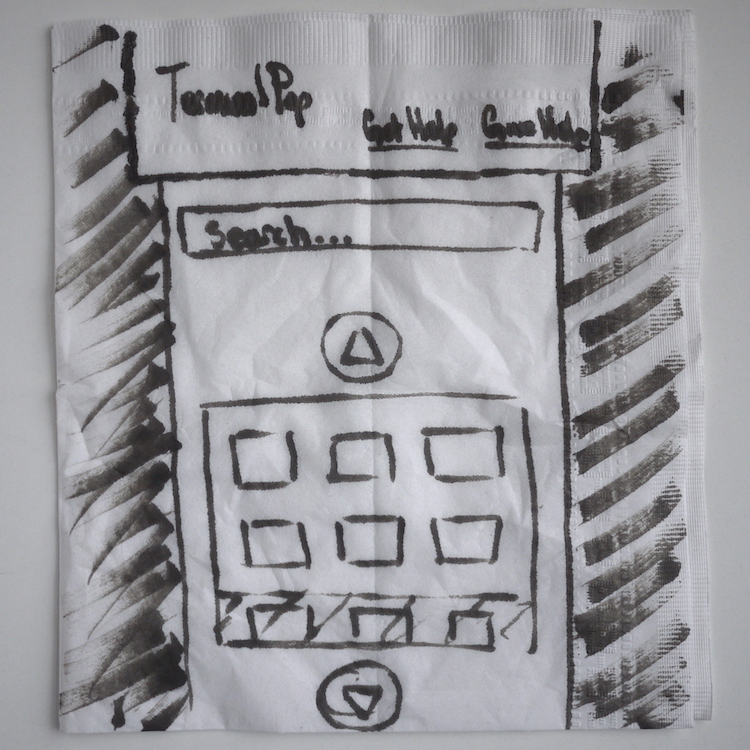 Pop
Get Help Give Help
Search...